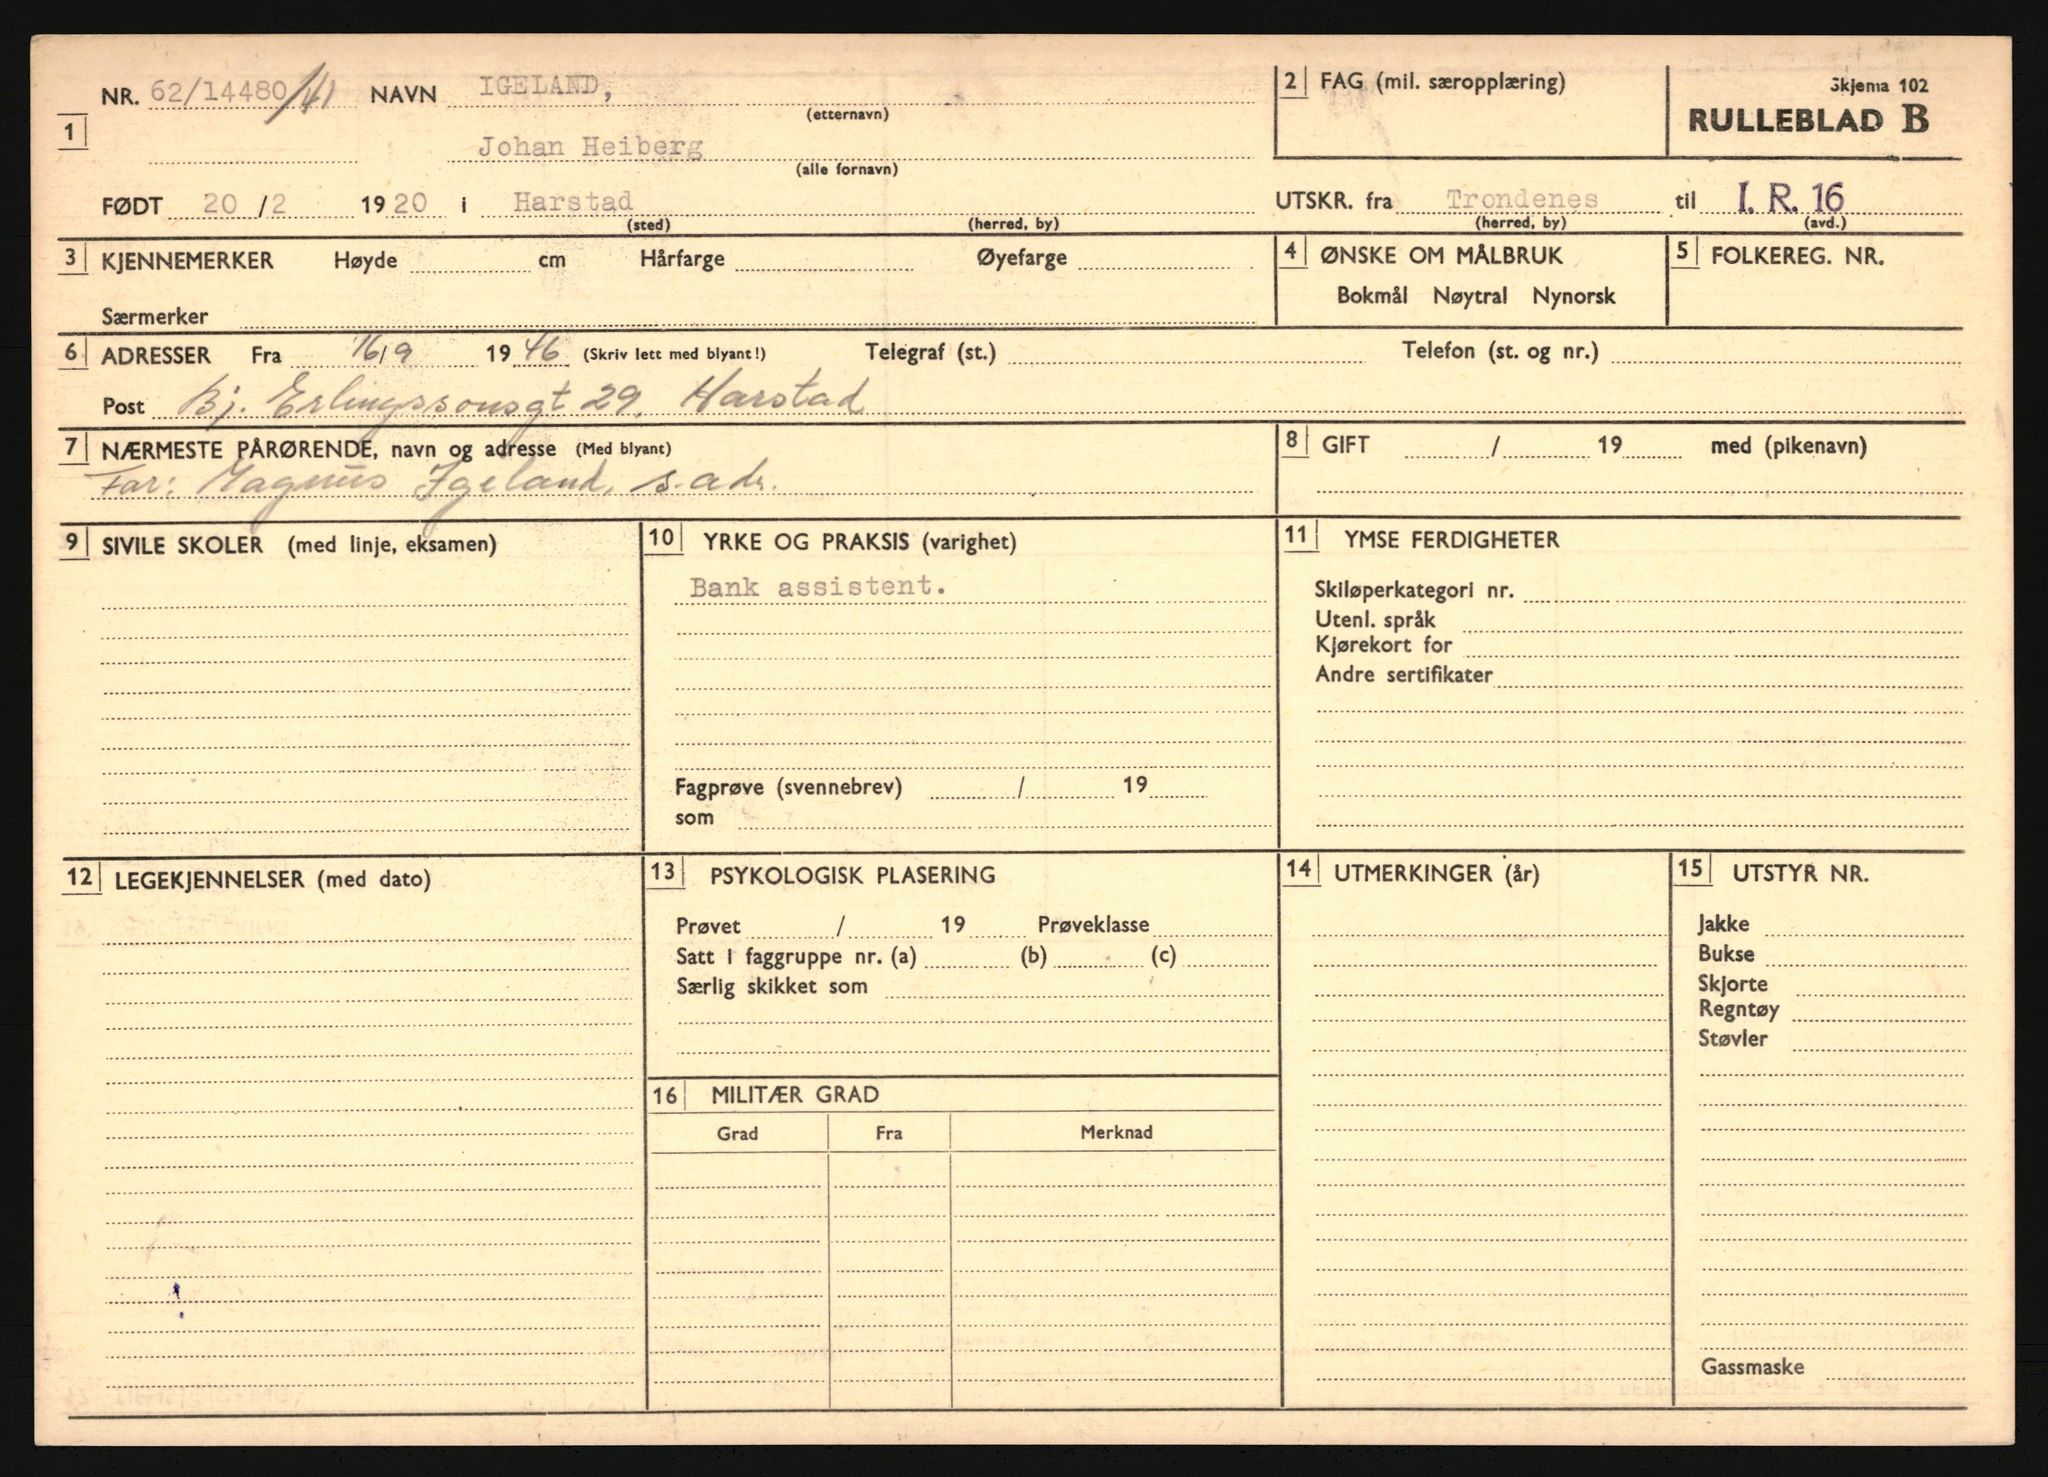 NR. 62/14480/41 NAVN IGELAND, 2 FAG (mil. særopplæring) Skjema 102
(etternavn) RULLEBLAD B
1 Johan Heiberg
(alle fornavn)
FØDT 20/2 1920 i Harstad UTSKR. fra Trondenes til I. R. 16
(sted) (herred, by) (herred, by) (avd.)
3 KJENNEMERKER Høyde cm Hårfarge Øyefarge 4 ØNSKE OM MÅLBRUK 5 FOLKEREG. NR.
Bokmål Nøytral Nynorsk
Særmerker
6 ADRESSER Fra 16/9 1946 (Skriv lett med blyant!) Telegraf (st.) Telefon (st. og nr.)
Post Bj. Erlingssonsgt 29, Harstad
7 NÆRMESTE PÅRØRENDE, navn og adresse (Med blyant) 8 GIFT / 19 med (pikenavn)
Far: Magnus Igeland, s. adr.
9 SIVILE SKOLER (med linje, eksamen) 10 YRKE OG PRAKSIS (varighet) 11 YMSE FERDIGHETER
Bank assistent. Skiløperkategori nr.
Utenl. språk
Kjørekort for
Andre sertifikater
Fagprøve (svennebrev) / 19
som
12 LEGEKJENNELSER (med dato) 13 PSYKOLOGISK PLASERING 14 UTMERKINGER (år) 15 UTSTYR NR.
Prøvet / 19 Prøveklasse Jakke
Satt i faggruppe nr. (a) (b) (c) Bukse
Særlig skikket som Skjorte
Regntøy
Støvler
16 MILITÆR GRAD
Grad Fra Merknad
Gassmaske